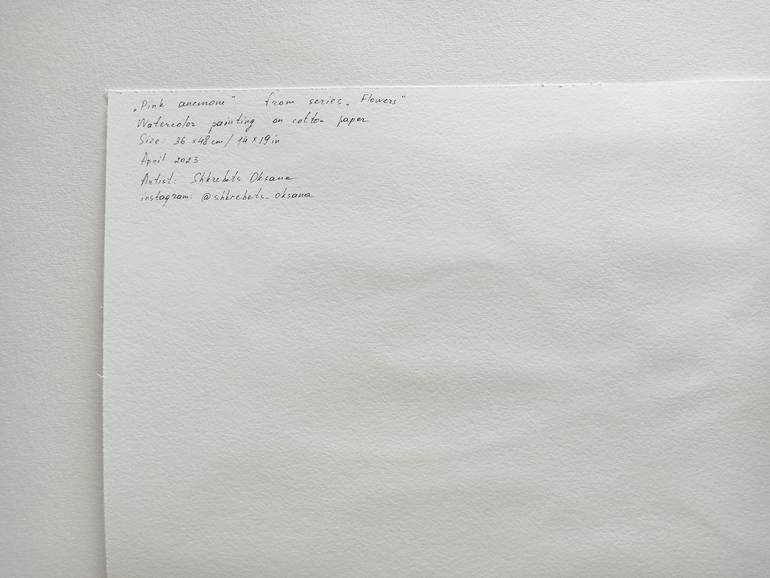 „Pink anemone" from series „Flowers"
Watercolor painting on cotton paper
Size: 36 x 48 cm / 14 x 19 in
April 2023
Artist: Shkrebets Oksana
instagram: @shkrebets_oksana